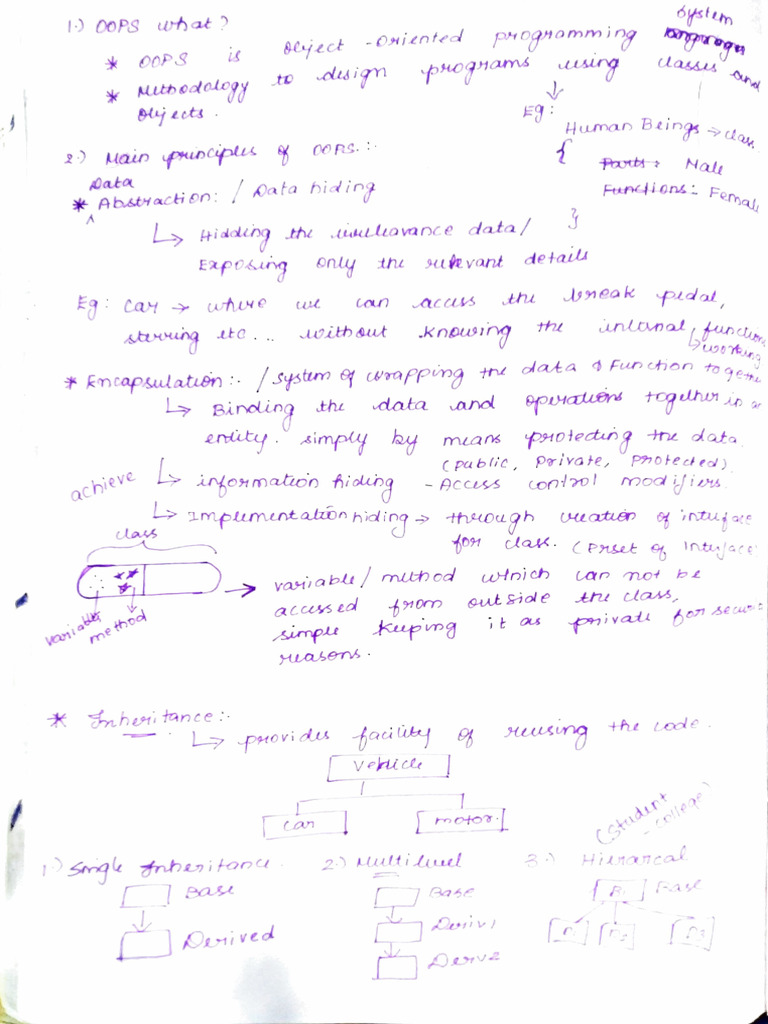 1.) OOPS what?
* OOPS is object-oriented programming system
* Methodology to design programs using classes and
objects.
Eg:
Human Beings → class
{
Parts: Male
Functions: Female
}
2.) Main principles of OOPS:.
Data
* Abstraction: / Data hiding
↳ Hidding the irrelavance data/
Exposing only the relevant details
Eg: Car → where we can access the break pedal,
sterring etc... without knowing the intanal, function
↳ working
* Encapsulation:. / system of wrapping the data & Function together
↳ Binding the data and operations together in a
entity. simply by means protecting the data.
(public, private, protected).
achieve ↳ information hiding - Access control modifiers.
↳ Implementation hiding → through creation of interface
for class. ( of Interface
class
variable method
→ variable/method which can not be
accessed from outside the class,
simple keeping it as private for secur
reasons.
* Inheritance:.
↳ provides facility of reusing the code.
Vehicle
car motor.
(Student
- college)
1.) Single Inheritance. 2.) Multilevel 3.) Hierarcal
Base Base B. Base
Derived Deriv1
Derv2